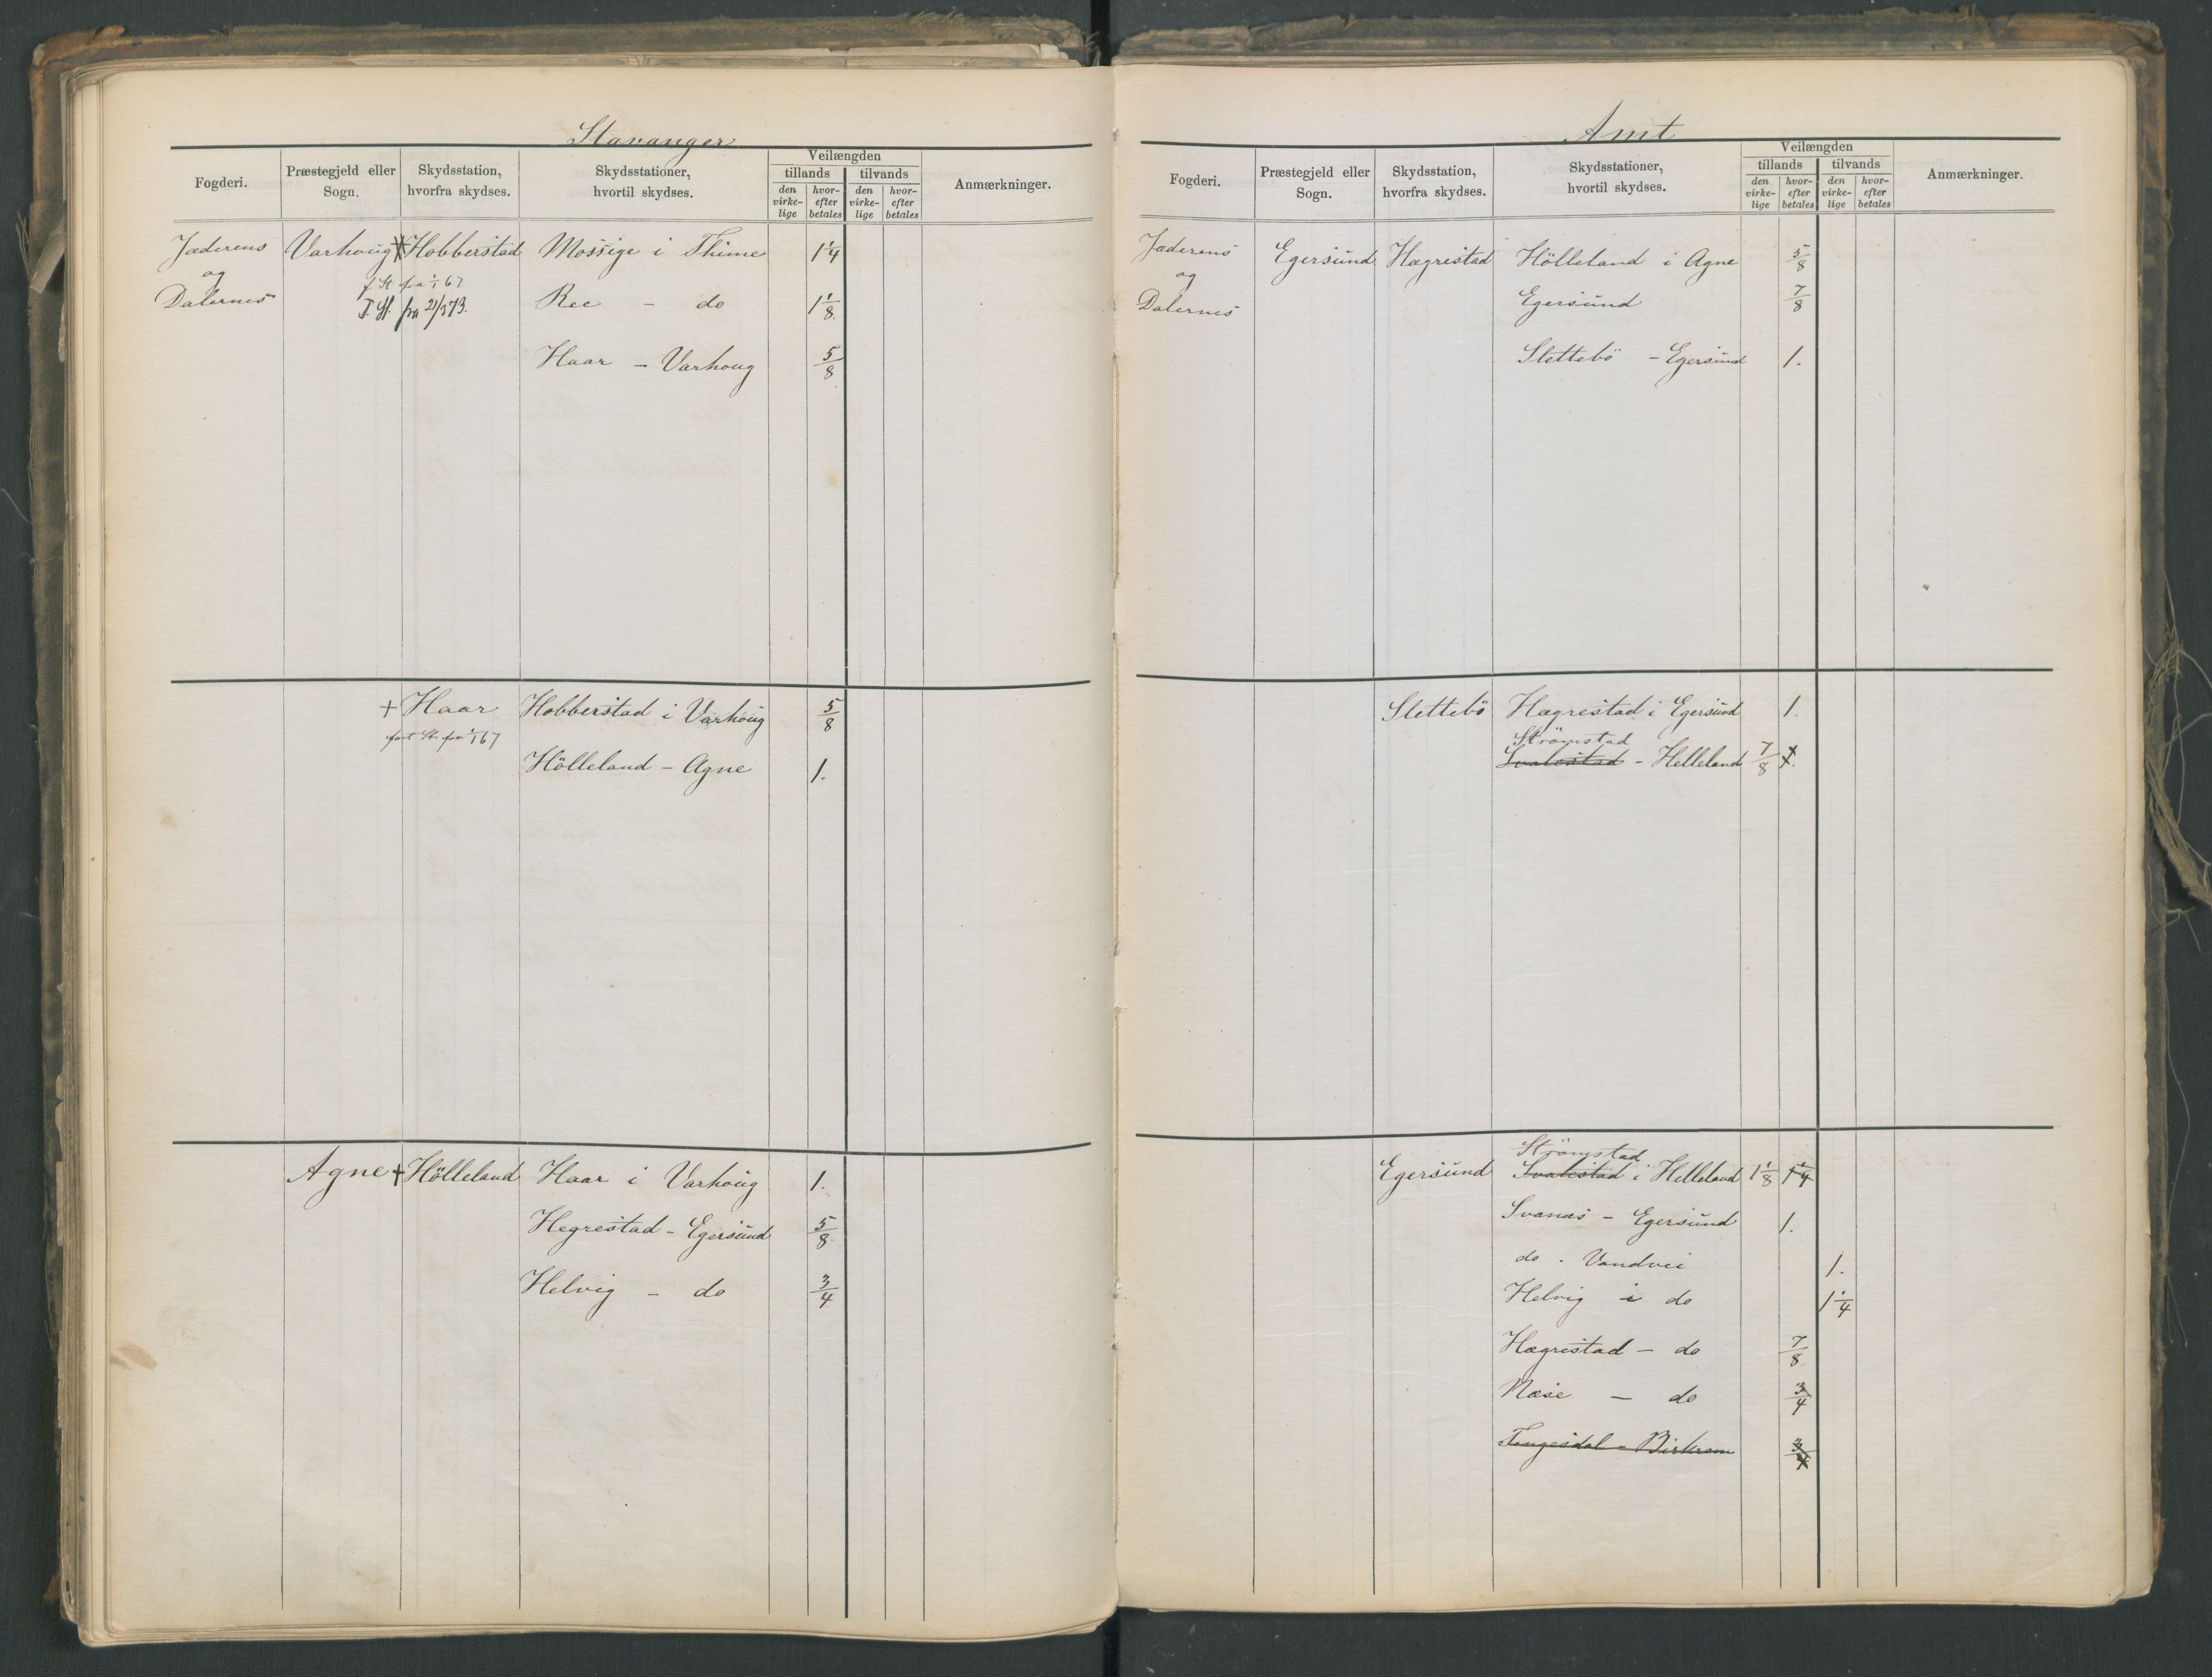 Stavanger
Fogderi. Præstegjeld eller Sogn. Skydsstation, hvorfra skydses. Skydsstationer, hvortil skydses. Veilængden tillands den virkelige hvorefter betales tilvands den virkelige hvorefter betales Anmærkninger.
Jæderens Varhoug Hobberstad Mossige i Thime 1 1/4
og
f St fra 1/1 67
Dalernes T. St. fra 21/3 73. Ree - do 1 1/8
Haar - Varhoug 5/8
+ Haar Hobberstad i Varhoug 5/8
fast St. fra 1/1 67
Hölleland - Agne 1.
Agne + Hölleland Haar i Varhoug 1.
Hegrestad - Egersund 5/8
Helvig - do 3/4
Amt
Fogderi. Præstegjeld eller Sogn. Skydsstation, hvorfra skydses. Skydsstationer, hvortil skydses. Veilængden tillands den virkelige hvorefter betales tilvands den virkelige hvorefter betales Anmærkninger.
Jæderens Egersund Hægrestad Hölleland i Agne 5/8
og
Dalernes Egersund 7/8
Slettebö - Egersund 1.
Slettebö Hægrestad i Egersund 1.
Strömstad
Svalestad - Helleland 7/8 1.
Strömstad
Egersund Svalestad i Helleland 1 1/8 1 1/4
Svanæs - Egersund 1.
do . Vandvei 1.
Helvig i do 1 1/4
Hægrestad - do 7/8
Næse - do 3/4
Tengesdal - Birkrem 3/4